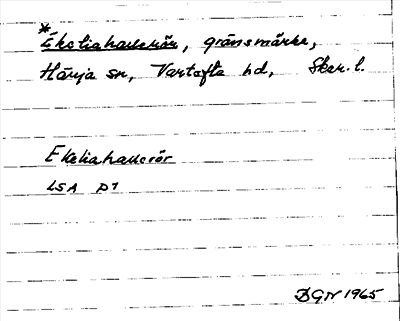 *Ekeliahallerör, gränsmärke,
Härja sn, Vartofta hd, Skar. l.
Ekeliahallerör
LSA D7
BGN 1965